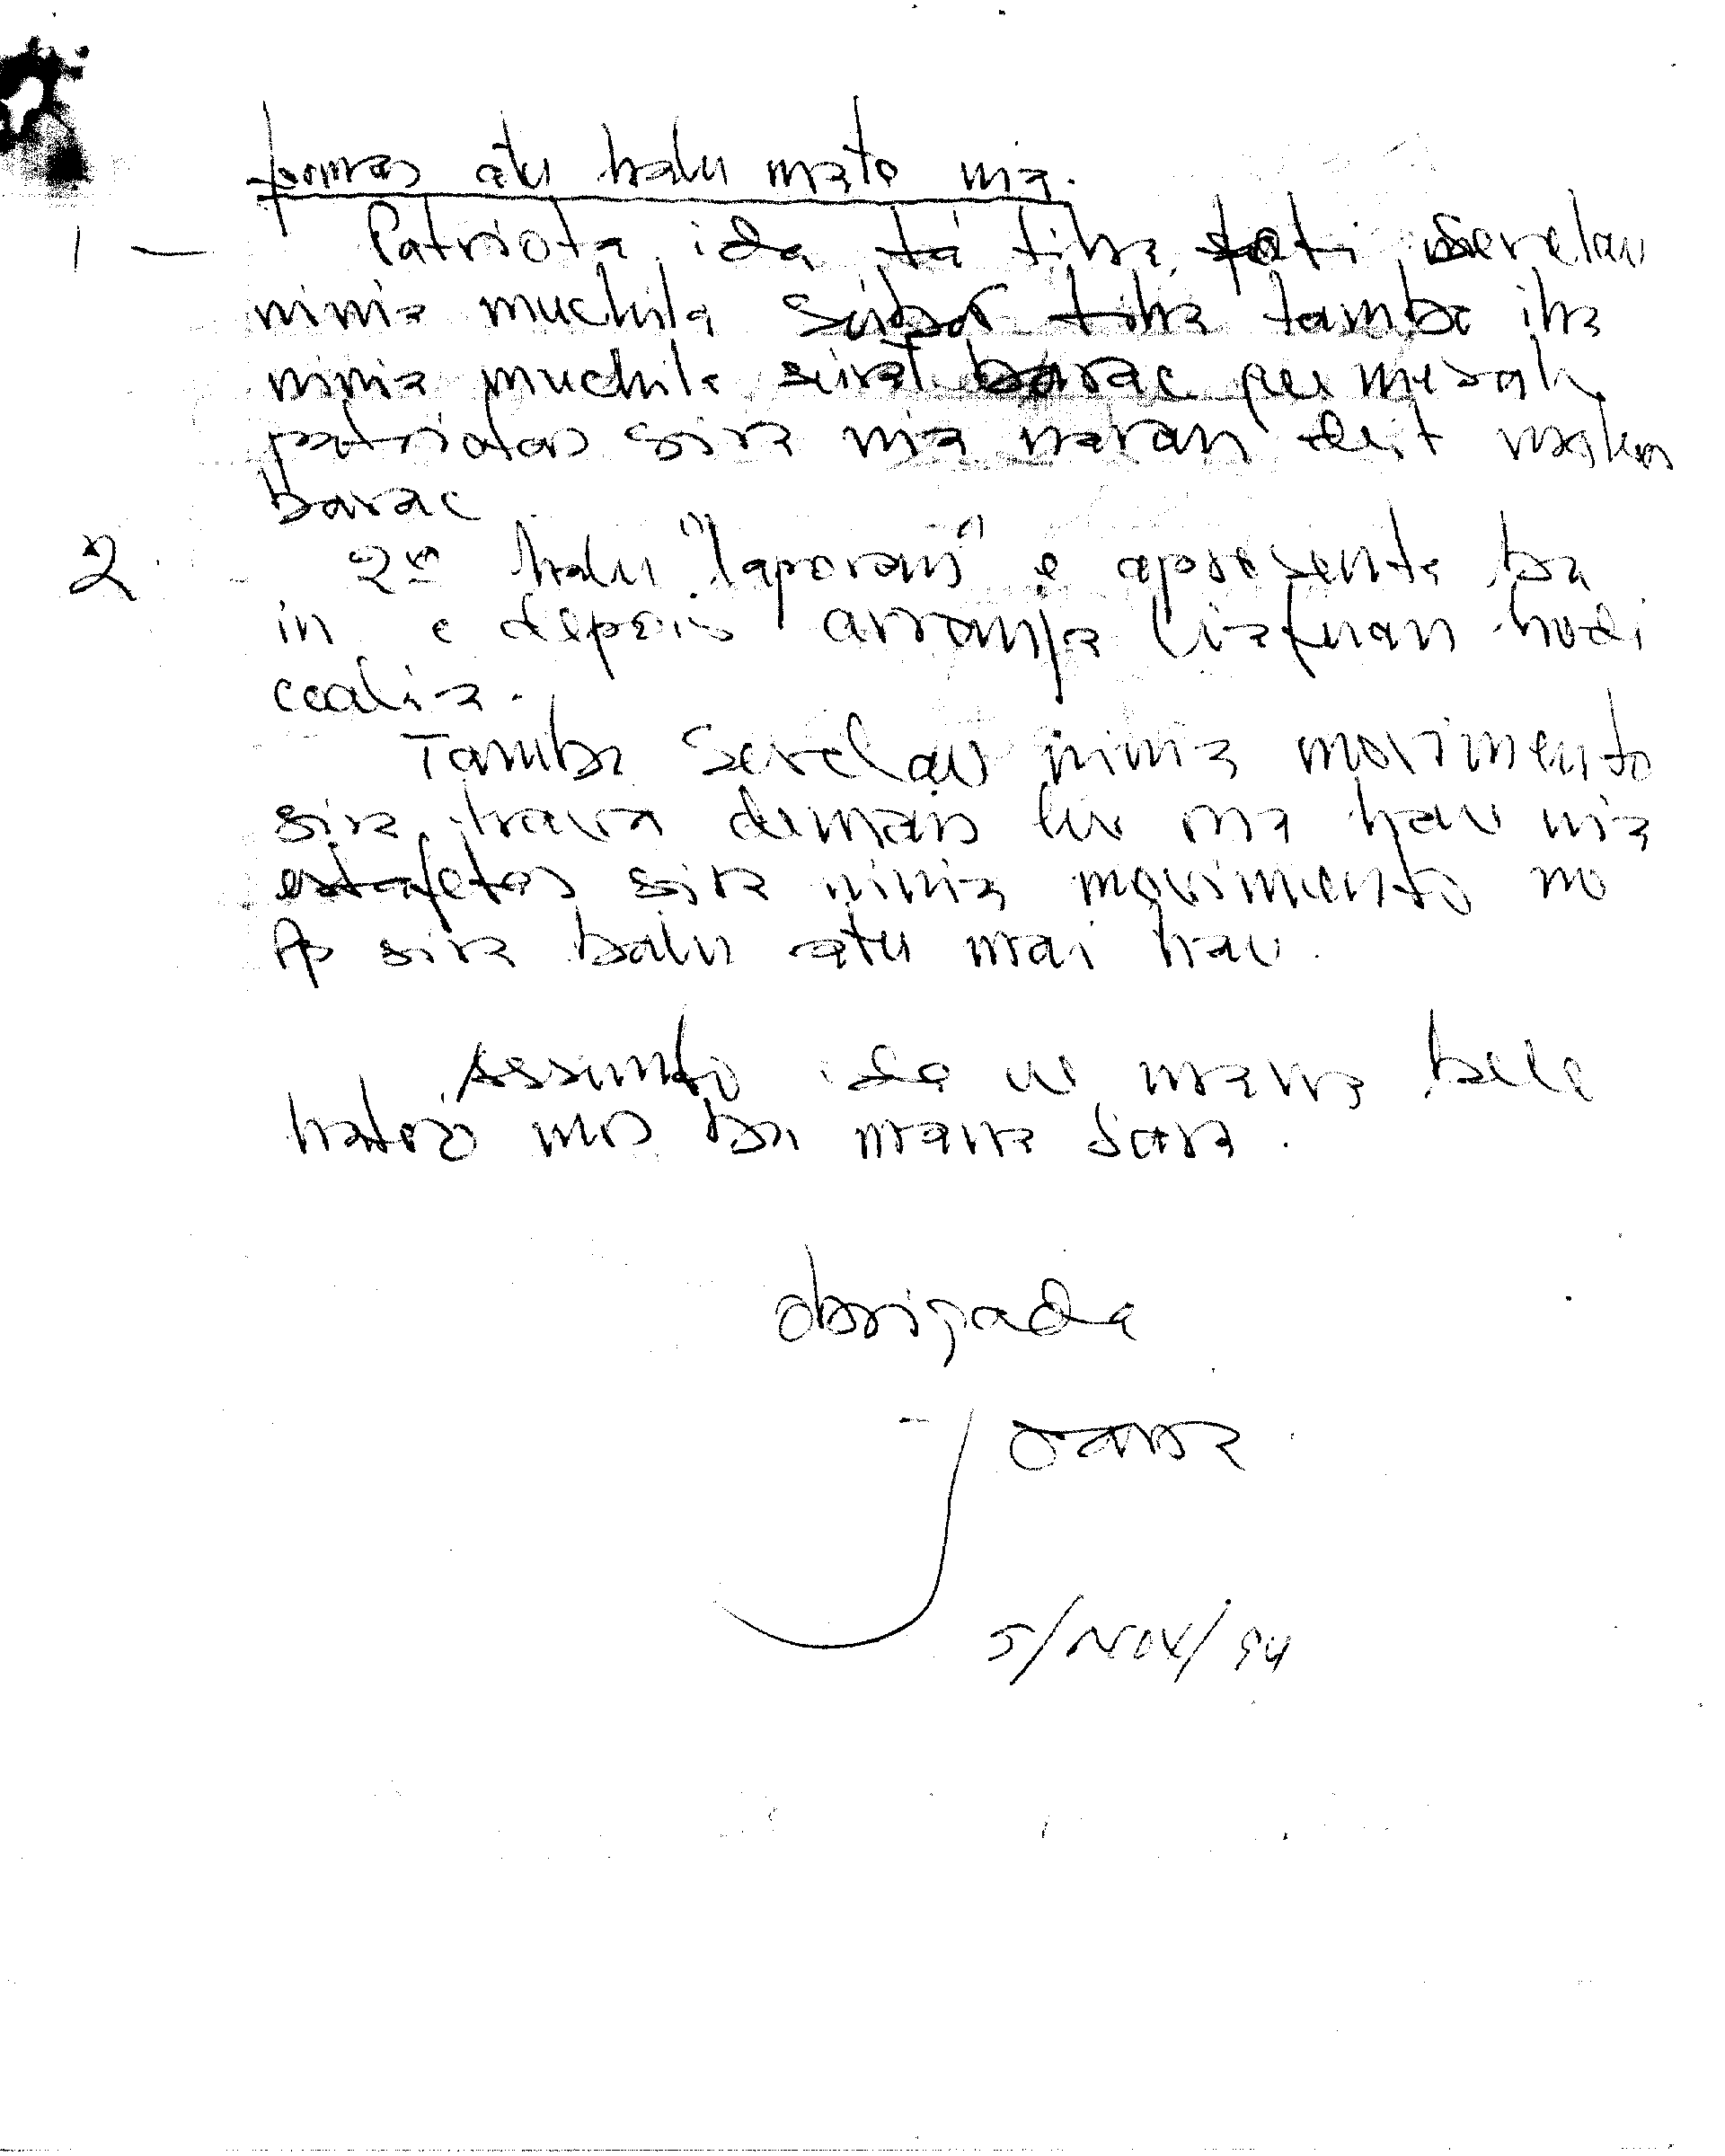 formas atu halu mate nia.
1 — Patriota ida tá tiha fati Serelau
ninia muchila tiha tamba iha
ninia muchila surat barac
patriotas sira nia naran deit
barac
2 2º halu "laporan" e apresenta ba
in e depois arranja liafuan hodi
Tamba Serelau ninia movimento
sira trava demais liu ma hau nia
estafetas sira ninia movimento no
Ap sira balu atu mai hau.
Assunto ida ne mana bele
hato'o mos ba mana Sara.
Obrigada
Joana
5/Nov/94